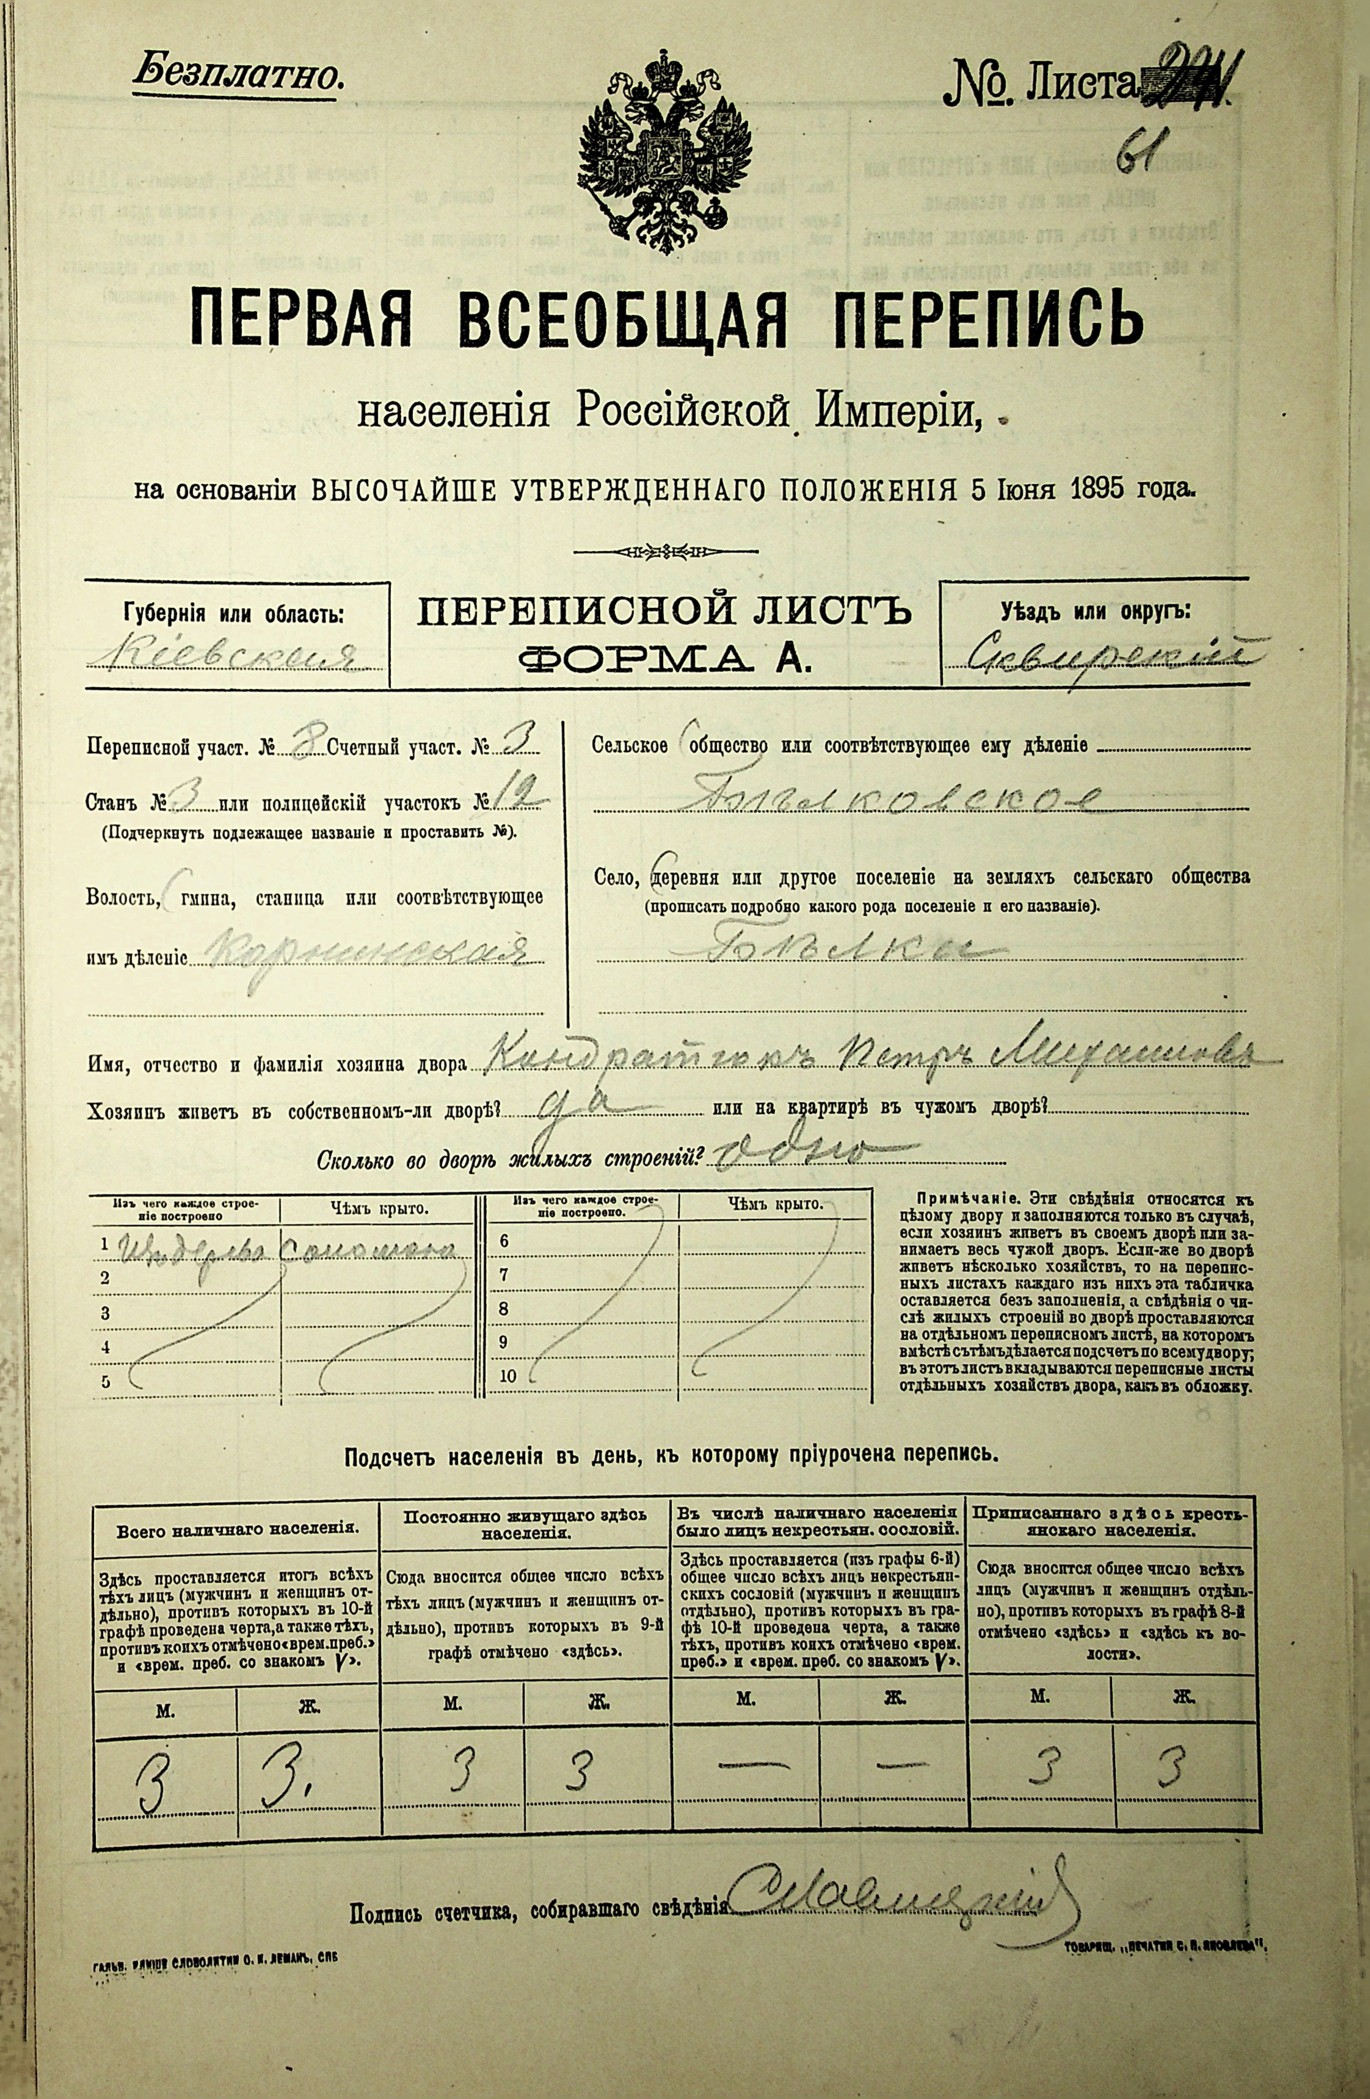 Безплатно.
№. Листа
61
ПЕРВАЯ ВСЕОБЩАЯ ПЕРЕПИСЬ
населенія Россійской Имперіи,
на основаніи ВЫСОЧАЙШЕ УТВЕРЖДЕННАГО ПОЛОЖЕНІЯ 5 Іюня 1895 года.
Губернія или область:
Кіевская
ПЕРЕПИСНОЙ ЛИСТЪ
ФОРМА А.
Уѣздъ или округъ:
Сквирскій
Переписной участ. № 8 Счетный участ. № 3
Станъ № 3 или полицейскій участокъ № 12
(Подчеркнуть подлежащее названіе и проставить №).
Волость, гмина, станица или соотвѣтствующее
имъ дѣленіе Корнинская
Сельское общество или соотвѣтствующее ему дѣленіе
Бѣлковское
Село, деревня или другое поселеніе на земляхъ сельскаго общества
(прописать подробно какого рода поселеніе и его названіе).
Бѣлки
Имя, отчество и фамилія хозяина двора Кондратюкъ Петръ Михайловъ
Хозяинъ живетъ въ собственномъ-ли дворѣ? да или на квартирѣ въ чужомъ дворѣ?
Сколько во дворѣ жилыхъ строеній? одно
Изъ чего каждое строе-
ніе построено
Чѣмъ крыто.
1 Изъ дерева Соломою
2
3
4
5
Изъ чего каждое строе-
ніе построено.
Чѣмъ крыто.
6
7
8
9
10
Примѣчаніе. Эти свѣдѣнія относятся къ
цѣлому двору и заполняются только въ случаѣ,
если хозяинъ живетъ въ своемъ дворѣ или за-
нимаетъ весь чужой дворъ. Если-же во дворѣ
живетъ нѣсколько хозяйствъ, то на перепис-
ныхъ листахъ каждаго изъ нихъ эта табличка
оставляется безъ заполненія, а свѣдѣнія о чи-
слѣ жилыхъ строеній во дворѣ проставляются
на отдѣльномъ переписномъ листѣ, на которомъ
вмѣстѣ съ тѣмъ дѣлается подсчетъ по всему двору;
въ этотъ листъ вкладываются переписные листы
отдѣльныхъ хозяйствъ двора, какъ въ обложку.
Подсчетъ населенія въ день, къ которому пріурочена перепись.
Всего наличнаго населенія.
Здѣсь проставляется итогъ всѣхъ
тѣхъ лицъ (мужчинъ и женщинъ от-
дѣльно), противъ которыхъ въ 10-й
графѣ проведена черта, а также тѣхъ,
противъ коихъ отмѣчено «врем. преб.»
и «врем. преб. со знакомъ V».
М. Ж.
3 3.
Постоянно живущаго здѣсь
населенія.
Сюда вносится общее число всѣхъ
тѣхъ лицъ (мужчинъ и женщинъ от-
дѣльно), противъ которыхъ въ 9-й
графѣ отмѣчено «здѣсь».
М. Ж.
3 3
Въ числѣ наличнаго населенія
было лицъ некрестьян. сословій.
Здѣсь проставляется (изъ графы 6-й)
общее число всѣхъ лицъ некрестьян-
скихъ сословій (мужчинъ и женщинъ
отдѣльно), противъ которыхъ въ гра-
фѣ 10-й проведена черта, а также
тѣхъ, противъ коихъ отмѣчено «врем.
преб.» и «врем. преб. со знакомъ V».
М. Ж.
— —
Приписаннаго здѣсь кресть-
янскаго населенія.
Сюда вносится общее число всѣхъ
лицъ (мужчинъ и женщинъ отдѣль-
но), противъ которыхъ въ графѣ 8-й
отмѣчено «здѣсь» и «здѣсь къ во-
лости».
М. Ж.
3 3
Подпись счетчика, собиравшаго свѣдѣнія
ГАЛЬВ. КЛИШЕ СЛОВОЛИТНИ О. И. ЛЕМАНЪ, СПБ
ТОВАРИЩ. „ПЕЧАТНИ С. П. ЯКОВЛЕВА“.